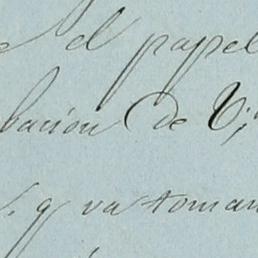 e el papel
bación de V;
S. q va toman